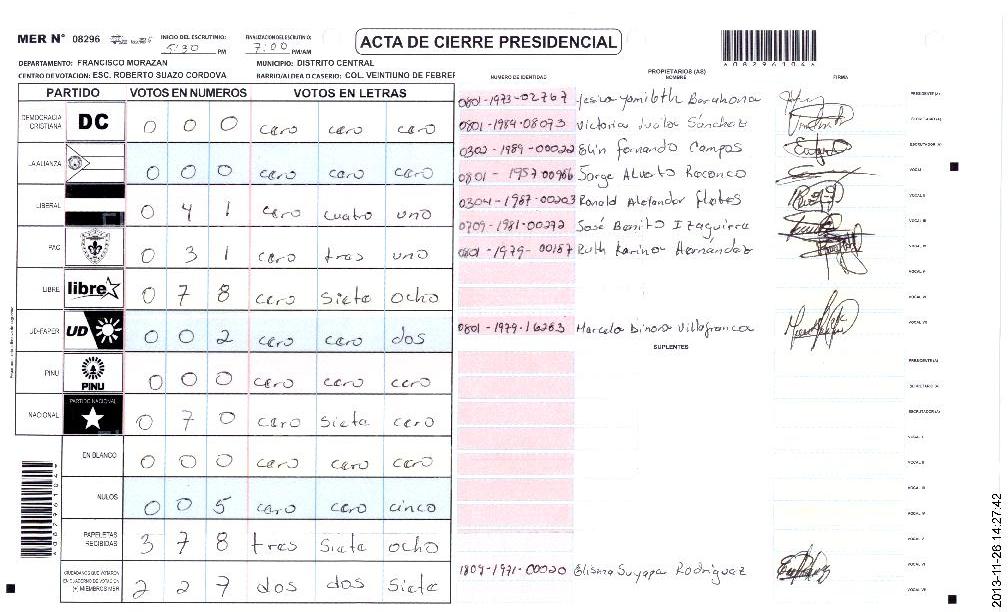 MER N° 08296
INICIO DEL ESCRUTINIO: 5:30 PM
FINALIZACION DEL ESCRUTINIO: 7:00 PM/AM
ACTA DE CIERRE PRESIDENCIAL
DEPARTAMENTO: FRANCISCO MORAZAN
MUNICIPIO: DISTRITO CENTRAL
CENTRO DE VOTACION: ESC. ROBERTO SUAZO CORDOVA
BARRIO/ALDEA O CASERIO: COL. VEINTIUNO DE FEBRER
PARTIDO VOTOS EN NUMEROS VOTOS EN LETRAS
DEMOCRACIA CRISTIANA DC 0 0 0 cero cero cero
LA ALIANZA 0 0 0 cero cero cero
LIBERAL 0 4 1 cero cuatro uno
PAC 0 3 1 cero tres uno
LIBRE libre 0 7 8 cero siete ocho
UD-FAPER UD 0 0 2 cero cero dos
PINU PINU 0 0 0 cero cero cero
NACIONAL PARTIDO NACIONAL 0 7 0 cero siete cero
EN BLANCO 0 0 0 cero cero cero
NULOS 0 0 5 cero cero cinco
PAPELETAS RECIBIDAS 3 7 8 tres siete ocho
CIUDADANOS QUE VOTARON EN CUADERNO DE VOTACION (+) MIEMBROS MER 2 2 7 dos dos siete
NUMERO DE IDENTIDAD
PROPIETARIOS (AS)
NOMBRE
FIRMA
0801-1973-02767 Yesica Yamileth Barahona PRESIDENTE (A)
0801-1984-08073 Victoria Sánchez SECRETARIO (A)
0302-1989-00022 Elin Fernando Campos ESCRUTADOR (A)
0801-1957-00966 Jorge Alverto Raconco VOCAL I
0304-1987-00203 Ronald Alexander Flores VOCAL II
0709-1981-00272 José Benito Izaguirre VOCAL III
0801-1979-00187 Ruth Karina Hernández VOCAL IV
VOCAL V
VOCAL VI
0801-1979-16263 Marcela Dinora Villafranca VOCAL VII
SUPLENTES
PRESIDENTE (A)
SECRETARIO (A)
ESCRUTADOR (A)
VOCAL I
VOCAL II
VOCAL III
VOCAL IV
VOCAL V
1809-1971-00020 Elisma Suyapa Rodriguez VOCAL VI
VOCAL VII
2013-11-26 14:27:42